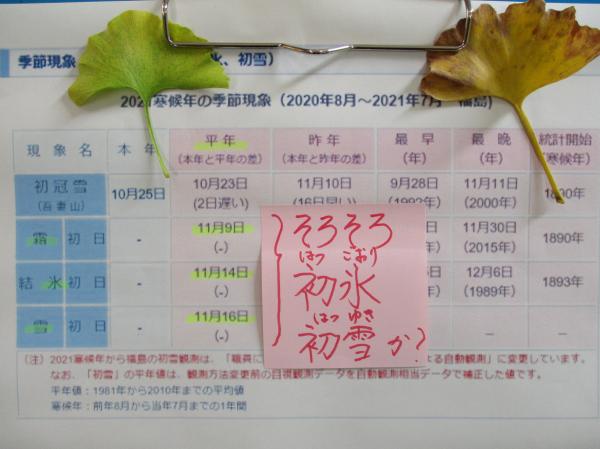 季節現象
氷、初雪)
2021寒候年の季節現象(2020年8月~2021年7月 福島)
現象名 本年 平年 (本年と平年の差) 昨年 (本年と昨年の差) 最早 (年) 最晩 (年) 統計開始 (寒候年)
初冠雪 (吾妻山) 10月25日 10月23日 (2日遅い) 11月10日 (16日早い) 9月28日 (1992年) 11月11日 (2000年) 1890年
霜 初日 - 11月9日 (-) 11月30日 (2015年) 1890年
結氷 初日 - 11月14日 (-) 12月6日 (1989年) 1893年
雪 初日 - 11月16日 (-) - -
そろそろ
はつ こおり
初氷
はつ ゆき
初雪か?
(注) 2021寒候年から福島の初雪観測は、「職員に よる自動観測」に変更しています。
なお、「初雪」の平年値は、観測方法変更前の目視観測データを自動観測相当データで補正した値です。
平年値:1981年から2010年までの平均値
寒候年:前年8月から当年7月までの1年間